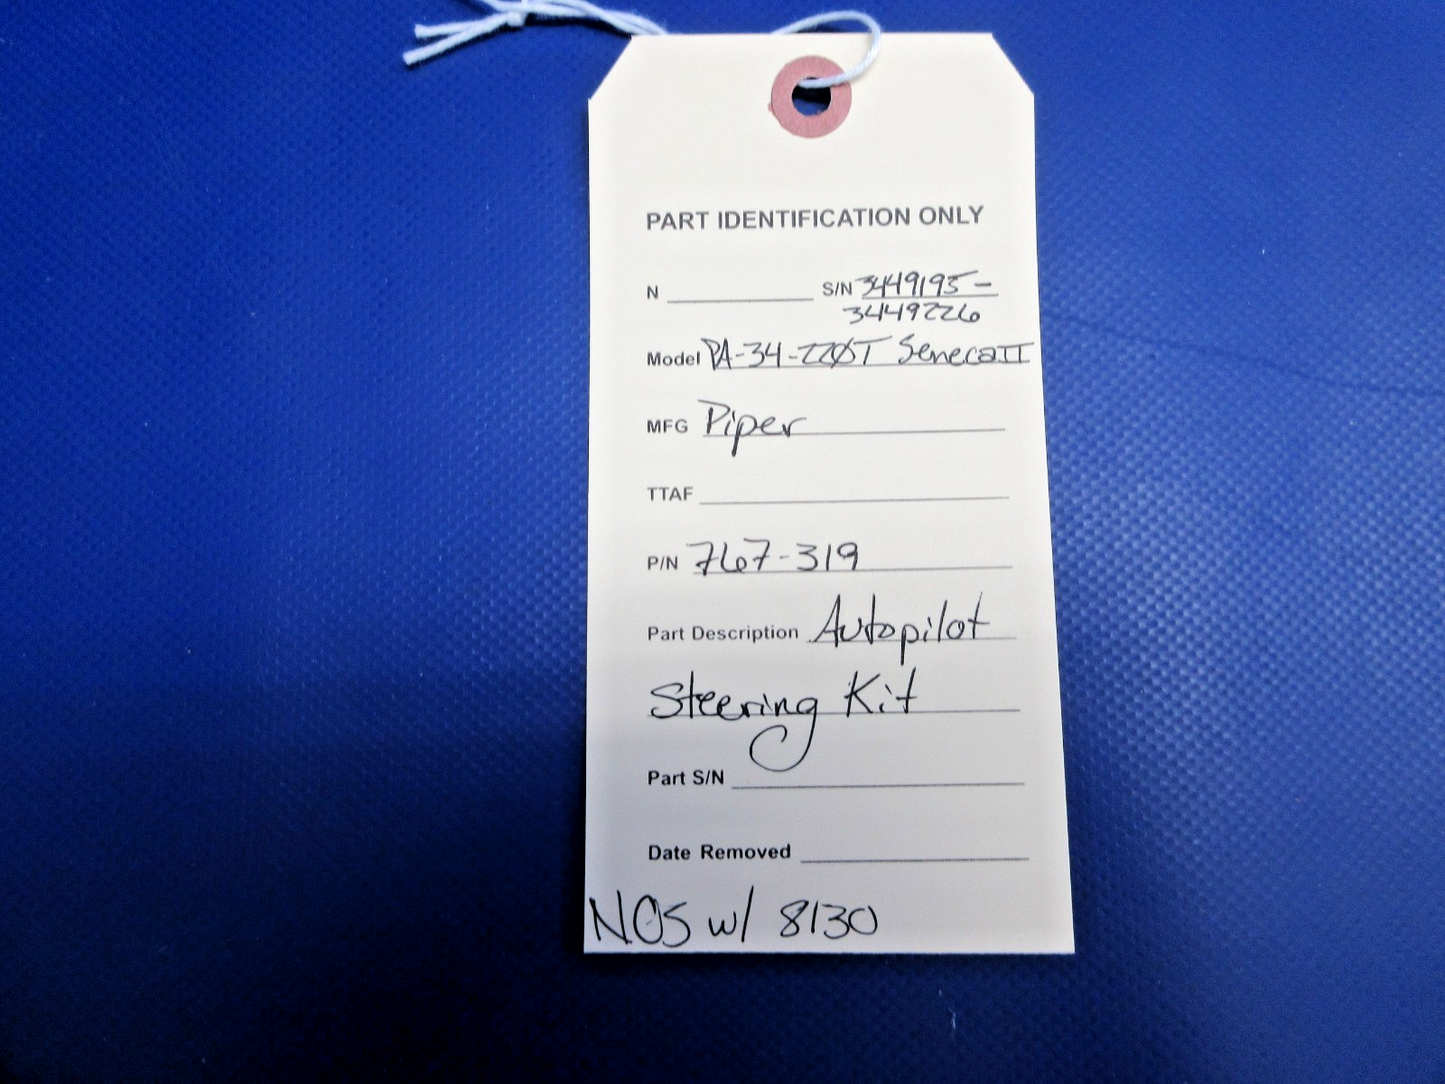 PART IDENTIFICATION ONLY
N S/N 3449195-
3449226
Model PA-34-220T Seneca II
MFG Piper
TTAF
P/N 767-319
Part Description Autopilot
Steering Kit
Part S/N
Date Removed
NOS w/ 8130